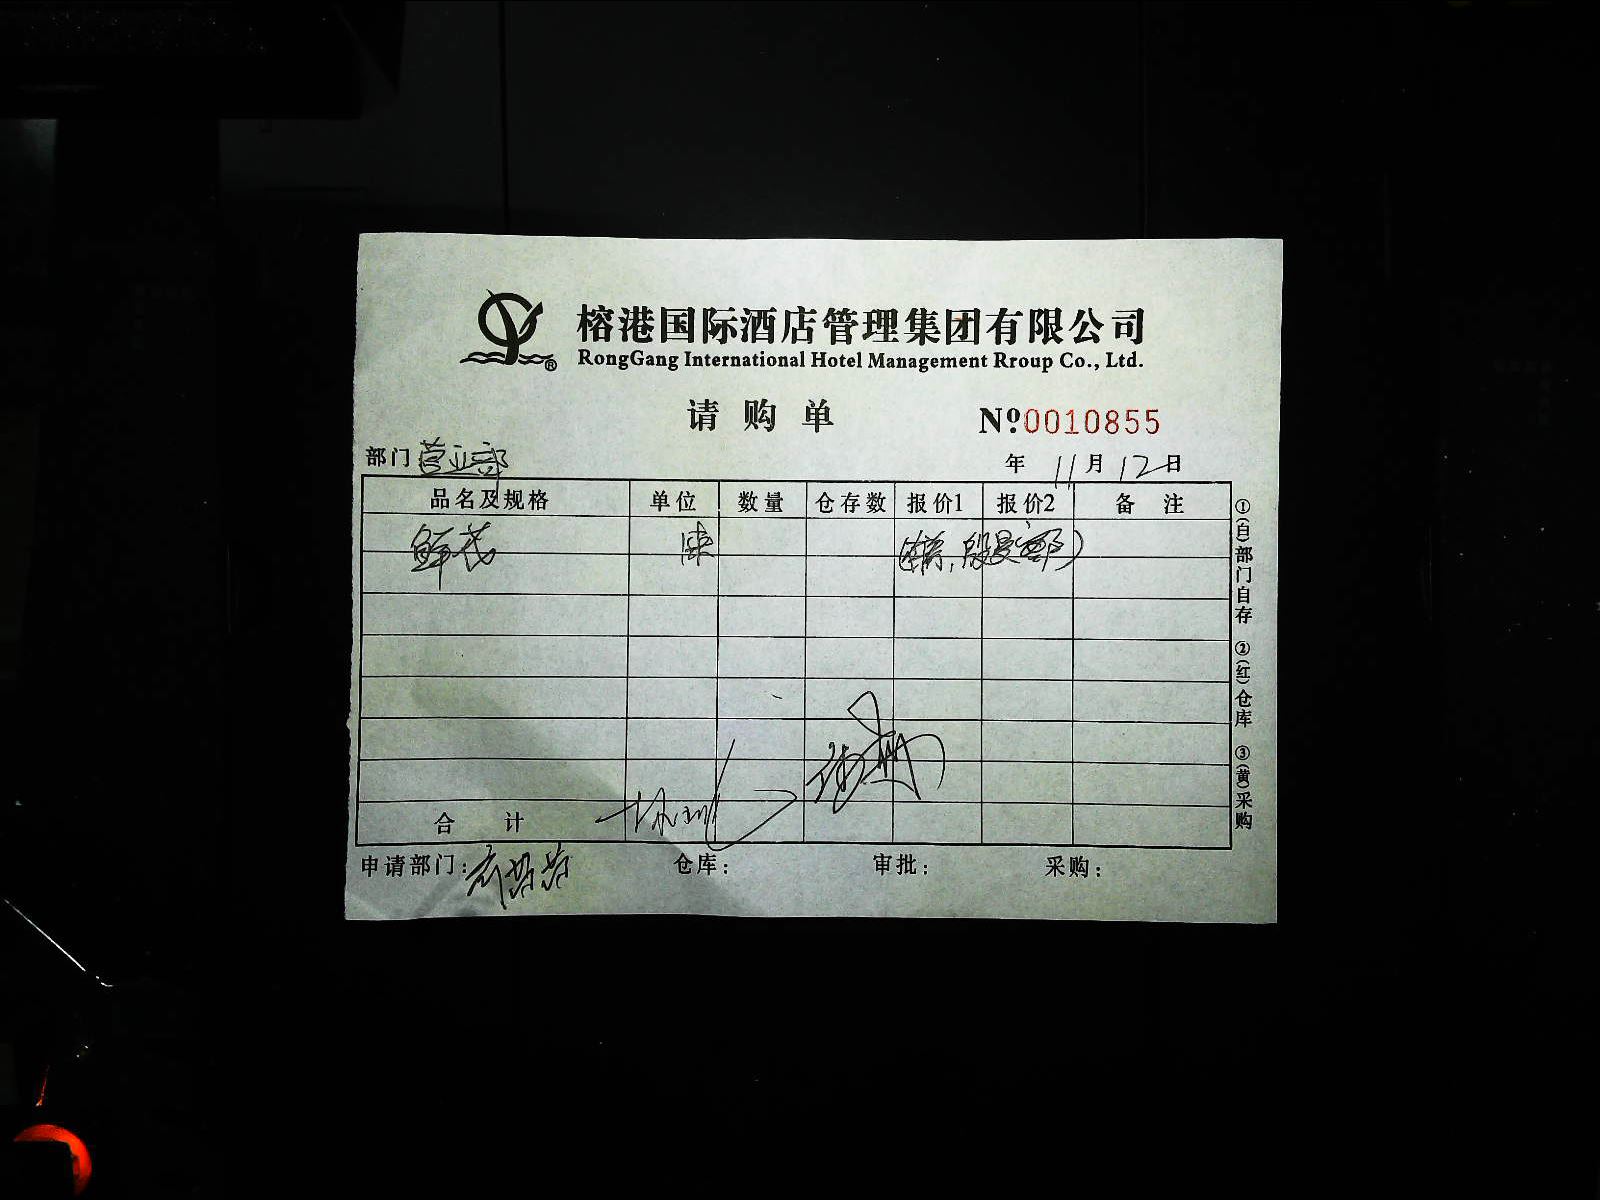 榕港国际酒店管理集团有限公司
RongGang International Hotel Management Rroup Co., Ltd.
®
请购单
Nº0010855
部门 营业部
年 11月 12日
品名及规格 单位 数量 仓存数 报价1 报价2 备注
鲜花
合计
申请部门: 仓库: 审批: 采购:
①(白)部门自存 ②(红)仓库 ③(黄)采购